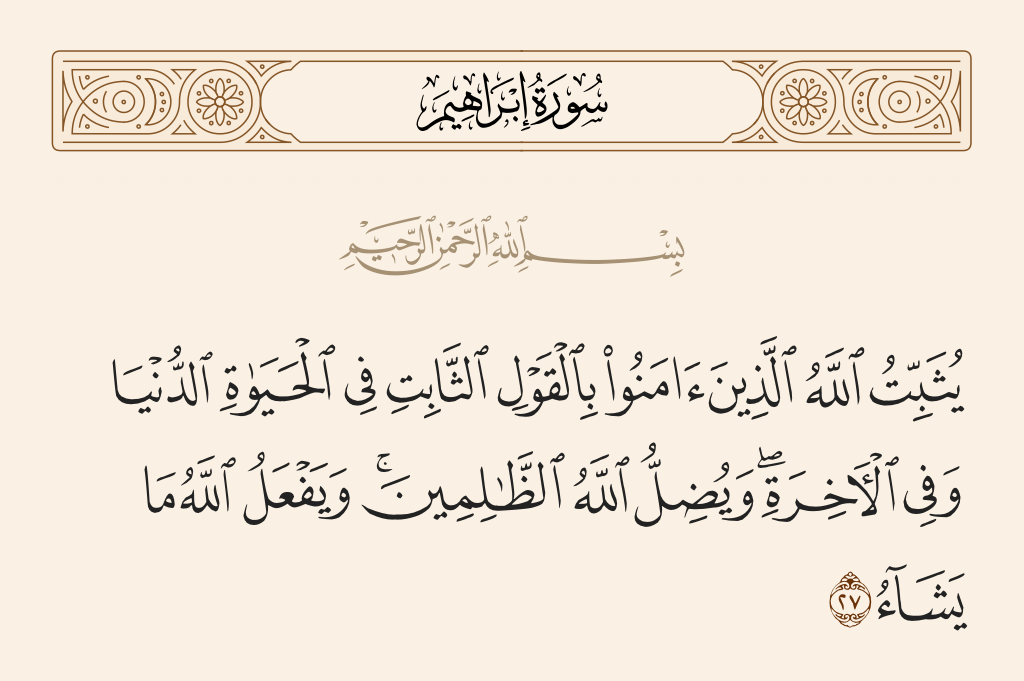 سُورَةُ إِبْرَاهِيمَ
بِسْمِ ٱللَّهِ ٱلرَّحْمَٰنِ ٱلرَّحِيمِ
يُثَبِّتُ ٱللَّهُ ٱلَّذِينَ ءَامَنُوا۟ بِٱلْقَوْلِ ٱلثَّابِتِ فِى ٱلْحَيَوٰةِ ٱلدُّنْيَا
وَفِى ٱلْـَٔاخِرَةِ ۖ وَيُضِلُّ ٱللَّهُ ٱلظَّـٰلِمِينَ ۚ وَيَفْعَلُ ٱللَّهُ مَا
يَشَآءُ ٢٧